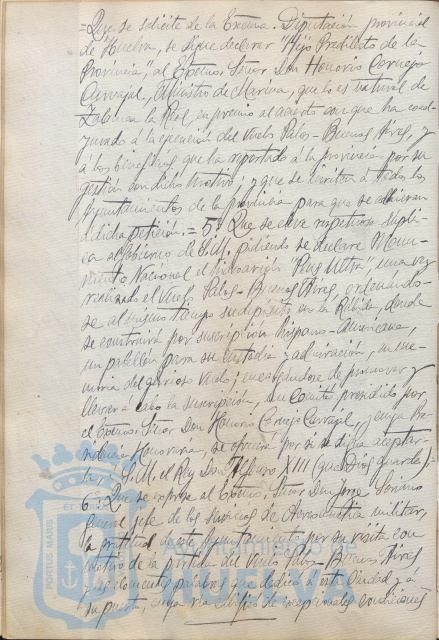 = Que se solicite de la Excma. Diputación provincial
de Huelva, se digne declarar "Hijo Predilecto de la
Provincia", al Excmo. Señor Don Honorio Cornejo
Carvajal, Ministro de Marina, que lo es natural de
Zalamea la Real, en premio al acierto con que ha coad-
yuvado a la ejecución del vuelo Palos-Buenos Aires, y
á los beneficios que ha reportado á la provincia por su
gestión con dicho motivo; y que se invite á todos los
Ayuntamientos de la provincia para que se adhieran
á dicha petición. = 5º Que se eleve respetuosa súpli-
ca al Gobierno de S.M. pidiendo se declare Monu-
mento Nacional el hidroavión "Plus Ultra", una vez
realizado el vuelo Palos-Buenos Aires, ordenando-
se al mismo tiempo su depósito en la Rábida, donde
se construirá por suscripción hispano-americana,
un pabellón para su custodia y admiración, en me-
moria del glorioso vuelo; encargándose de promover y
llevar á cabo la suscripción, un Comité presidido por
el Excmo. Señor Don Honorio Cornejo Carvajal, y cuya Pre-
sidencia Honoraria, se ofrecerá por si se digna aceptar-
la, á S.M. el Rey Don Alfonso XIII (q. Dios guarde);
6º Que se exprese al Excmo. Señor Don Jorge Soriano
General Jefe de los Servicios de Aeronáutica militar,
la gratitud de este Ayuntamiento por su visita con
motivo de la partida del vuelo Palos-Buenos Aires,
y elocuentes palabras que dedicó á esta Ciudad y á
su puerto, cuya ría calificó de excepcionales condiciones
PORTUS MARIS ET
Ayuntamiento de
HUELVA